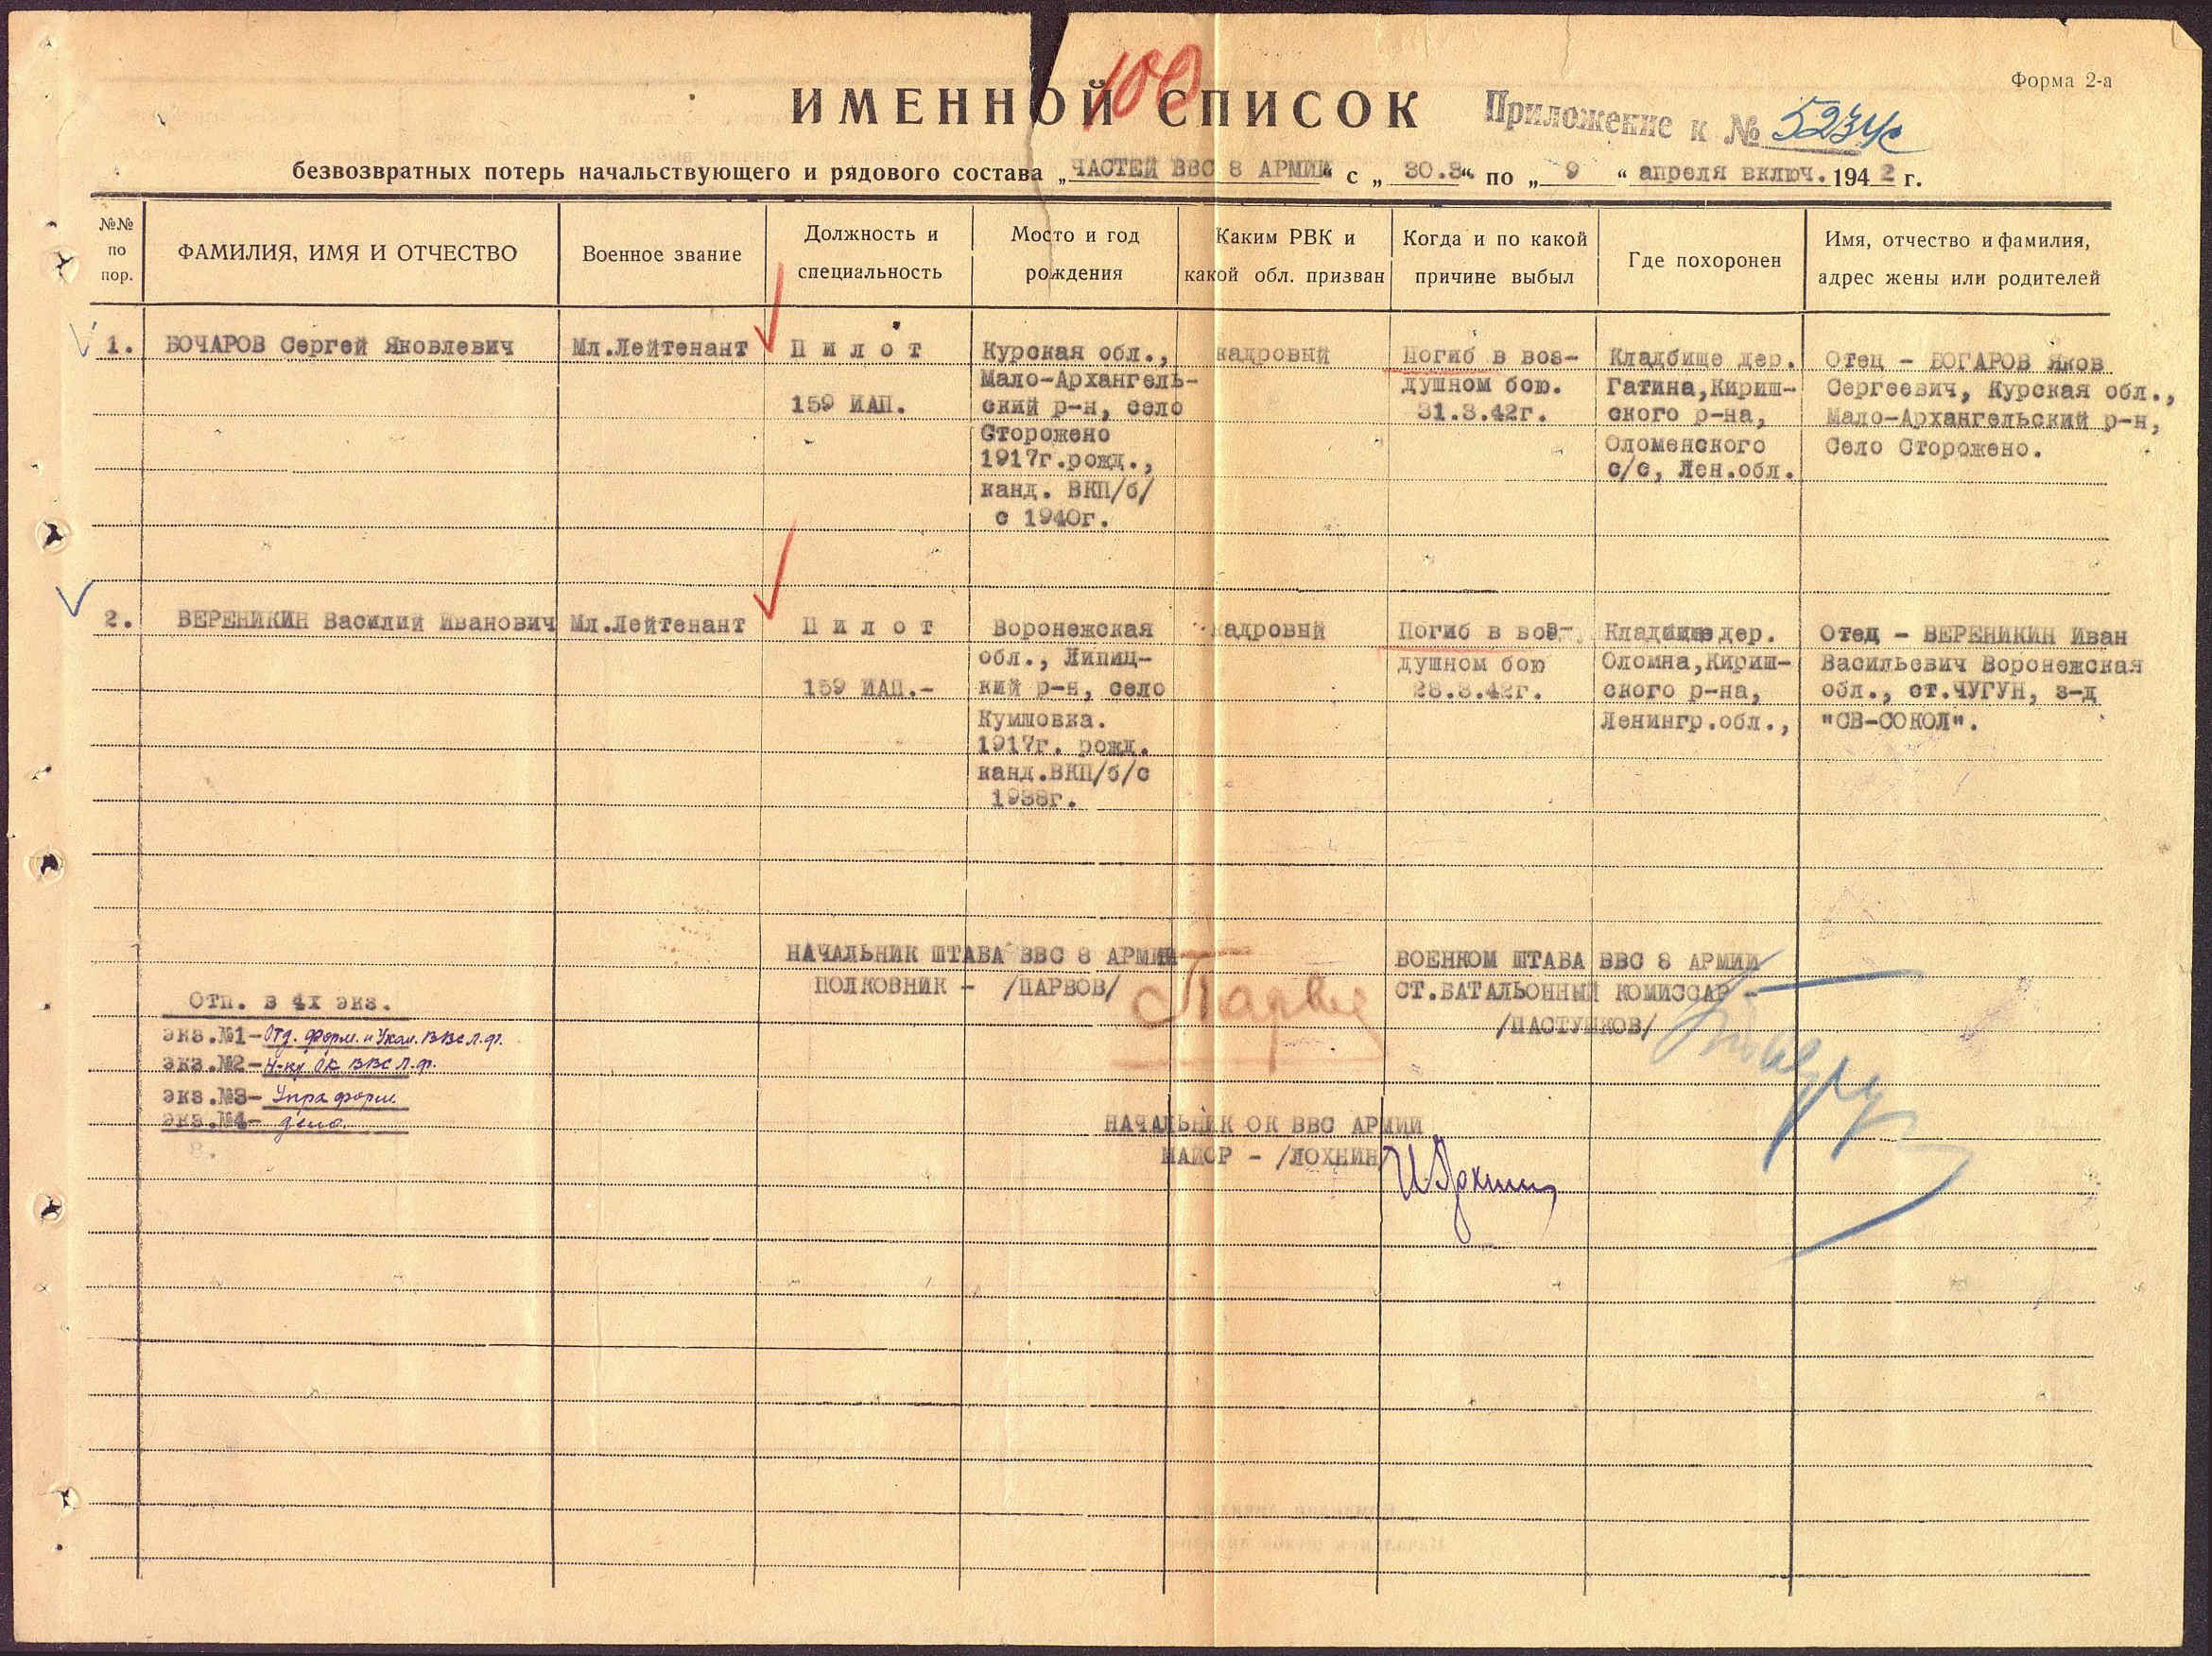 Форма 2-а
100
ИМЕННОЙ СПИСОК
Приложение к № 5234с
безвозвратных потерь начальствующего и рядового состава „ЧАСТЕЙ ВВС 8 АРМИИ“ с „30.3“ по „9“ апреля включ. 1942 г.
№№ по пор.
ФАМИЛИЯ, ИМЯ И ОТЧЕСТВО
Военное звание
Должность и
специальность
Место и год
рождения
Каким РВК и
какой обл. призван
Когда и по какой
причине выбыл
Где похоронен
Имя, отчество и фамилия,
адрес жены или родителей
1.
БОЧАРОВ Сергей Яковлевич
Мл.Лейтенант
П и л о т
159 ИАП.
Курская обл.,
Мало-Архангель-
ский р-н, село
Сторожено
1917г.рожд.,
канд. ВКП/б/
с 1940г.
кадровый
Погиб в воз-
душном бою.
31.3.42г.
Кладбище дер.
Гатина,Кириш-
ского р-на,
Оломенского
с/с, Лен.обл.
Отец - БОГАРОВ Яков
Сергеевич, Курская обл.,
Мало-Архангельский р-н,
Село Сторожено.
2.
ВЕРЕНИКИН Василий Иванович
Мл.Лейтенант
П и л о т
159 ИАП.-
Воронежская
обл., Липиц-
кий р-н, село
Кумшовка.
1917г. рожд.
канд.ВКП/б/с
1938г.
кадровый
Погиб в воз-
душном бою
28.3.42г.
Кладбище дер.
Оломна,Кириш-
ского р-на,
Ленингр.обл.,
Отец - ВЕРЕНИКИН Иван
Васильевич Воронежская
обл., ст.ЧУГУН, з-д
"СВ-СОКОЛ".
НАЧАЛЬНИК ШТАБА ВВС 8 АРМИИ
ПОЛКОВНИК - /ПАРВОВ/
ВОЕНКОМ ШТАБА ВВС 8 АРМИИ
СТ.БАТАЛЬОННЫЙ КОМИССАР -
/ПАСТУШКОВ/
Отп. в 4х экз.
экз.№1- Отд. форм. и Уком. ВВС Л.ф.
экз.№2- Н-ку ОК ВВС Л.ф.
экз.№3- Упра форм.
экз.№4- дело.
8.
НАЧАЛЬНИК ОК ВВС АРМИИ
МАЙОР - /ЛОХНИН